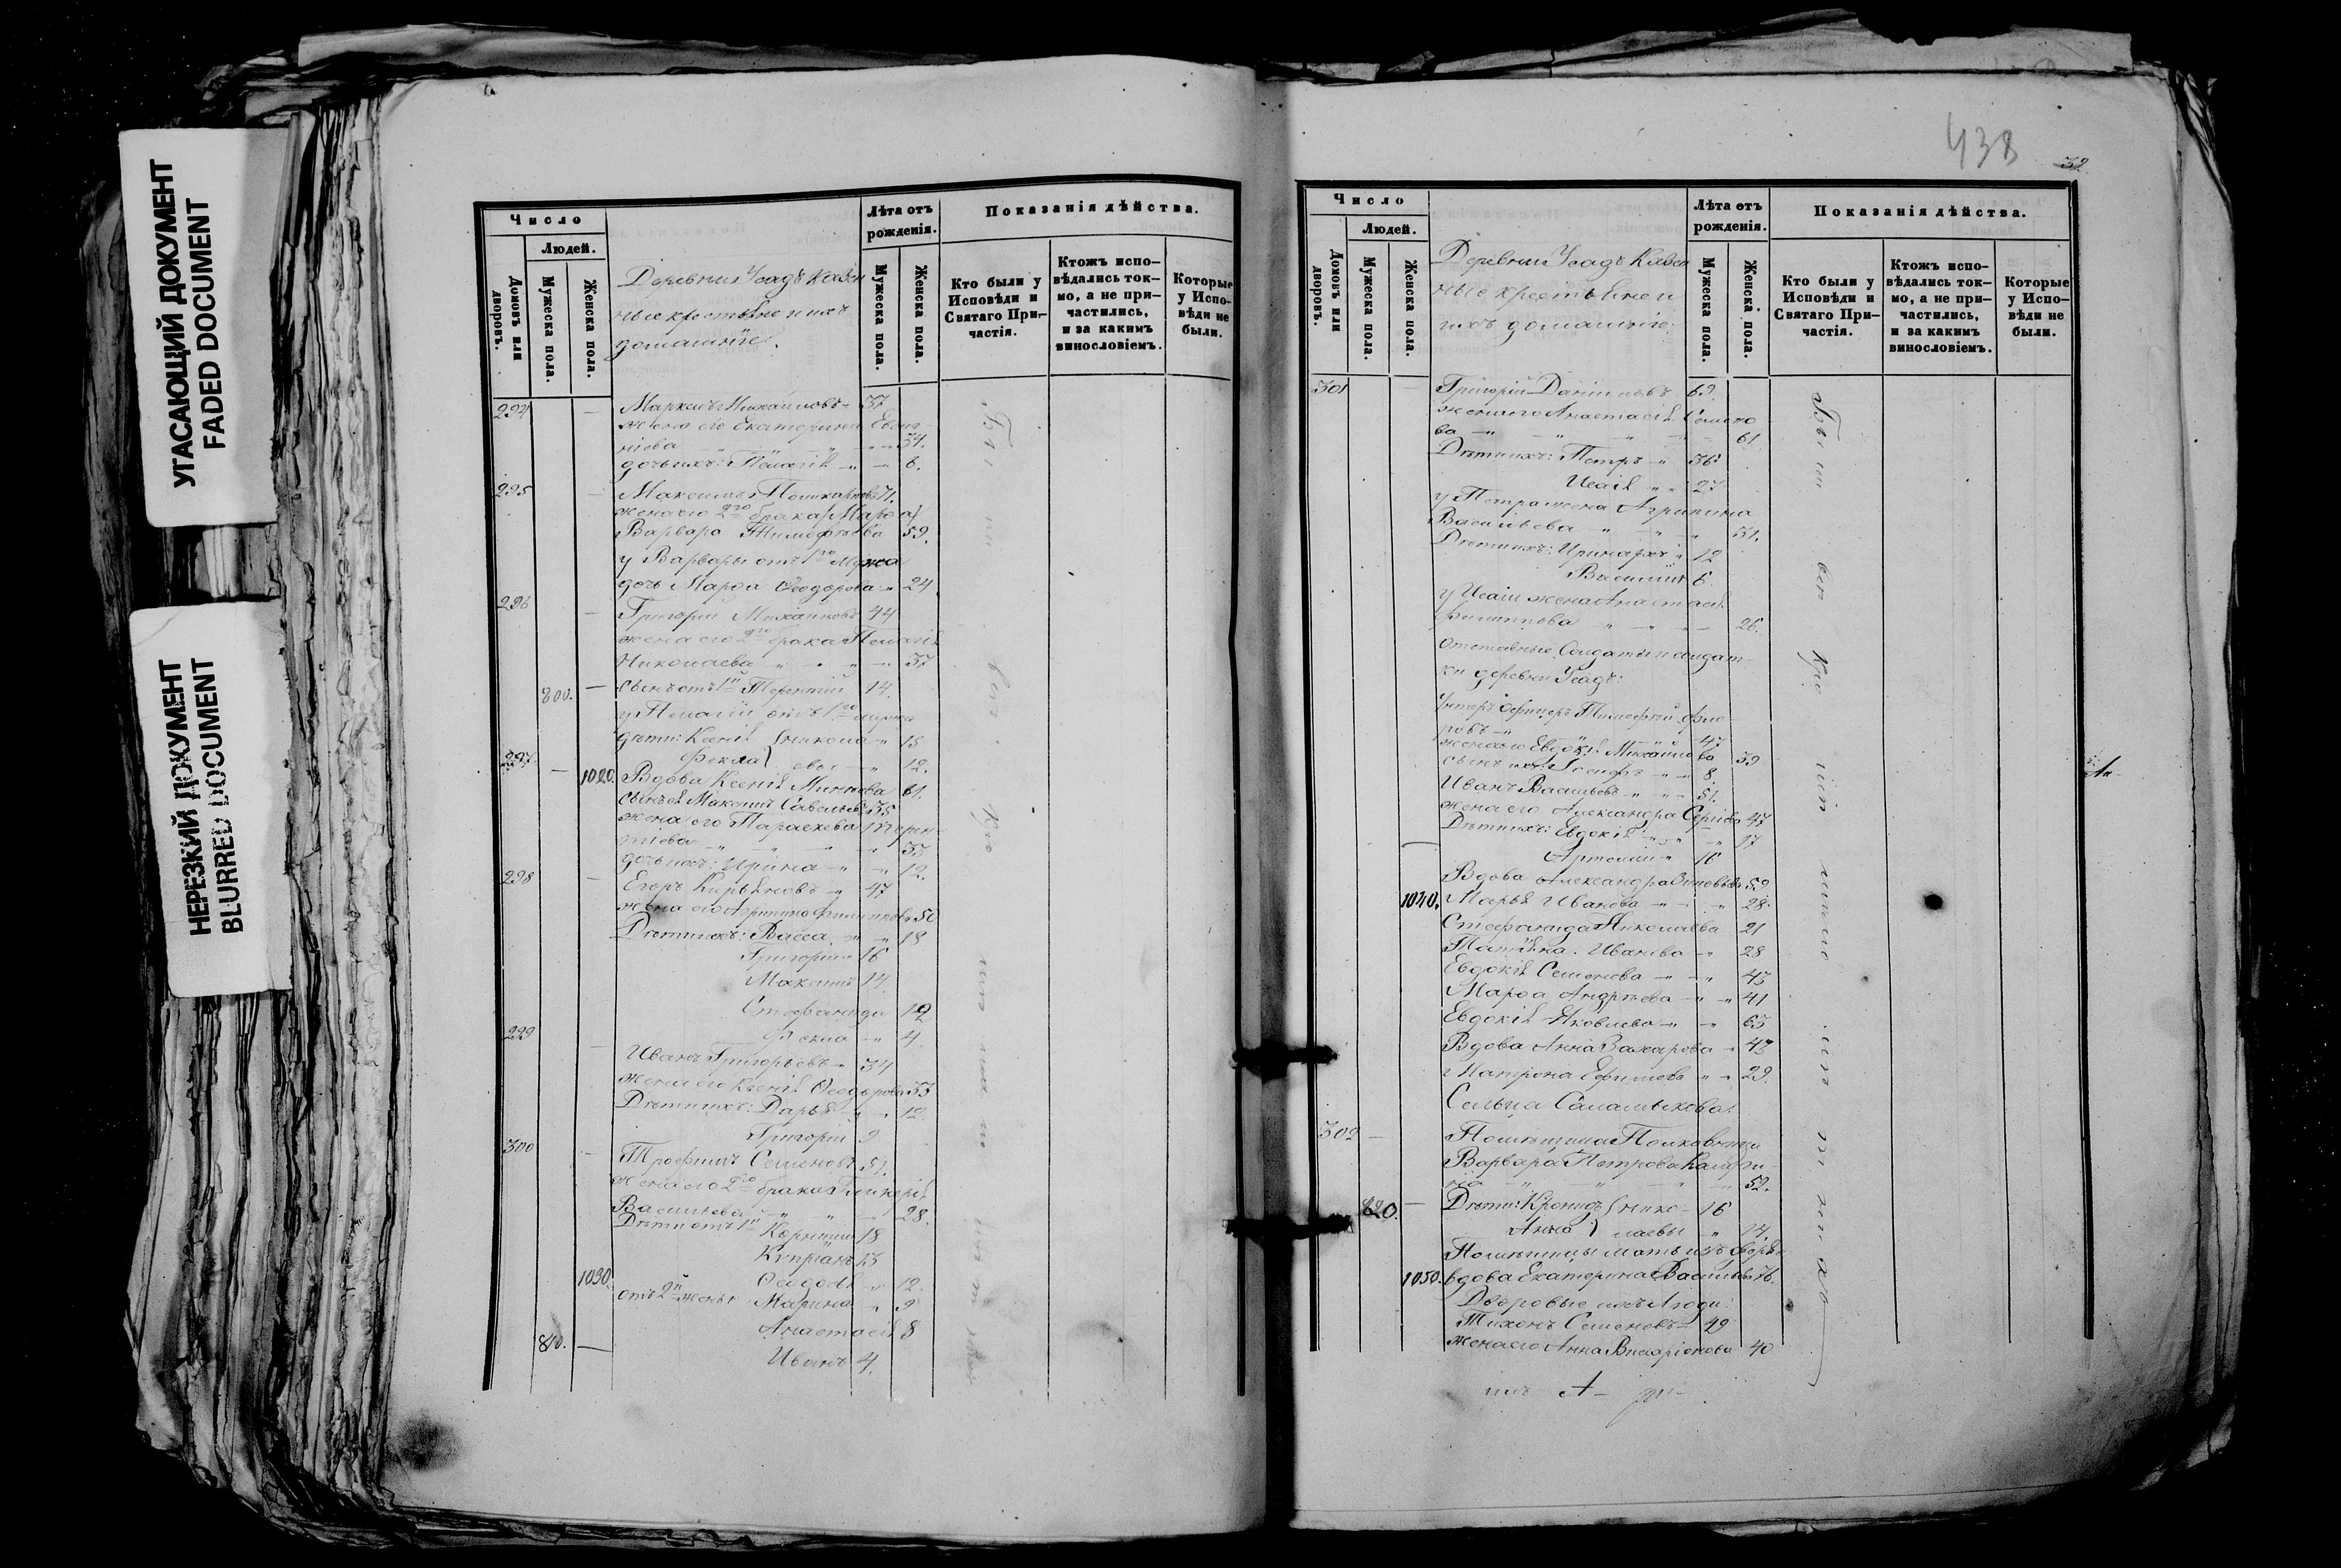 УГАСАЮЩИЙ ДОКУМЕНТ
FADED DOCUMENT
НЕРЕЗКИЙ ДОКУМЕНТ
BLURRED DOCUMENT
Число
Людей.
Домовъ или дворовъ.
Мужеска пола.
Женска пола.
Деревни Усадъ Казен
ные крестьяне и ихъ
домашніе.
Лѣта отъ рожденія.
Мужеска пола.
Женска пола.
Показанія дѣйства.
Кто были у Исповѣди и Святаго При-частія.
Ктожъ испо-вѣдались ток-мо, а не при-частились, и за какимъ винословіемъ.
Которые у Испо-вѣди не были.
294 Маркелъ Михайловъ 37
жена его Екатерина
34.
дочь ихъ: Пелагія 6.
295 Максимъ Поликарповъ 71.
жена его 2го брака
Варвара Тимофѣева 59.
у Варвары отъ 1го мужа
дочь Марѳа Ѳеодорова 24
296 Григорій Михайловъ 44
жена его 2го брака Пелагія
Николаева 37
800. сынъ отъ 1й Терентій 14.
у Пелагіи отъ 1го мужа
дѣти: Ксенія Никола 15
Фекла евы 12.
297 1020. Вдова Ксенія 61.
сынъ ея Максимъ Савельевъ 35
жена его Параскева Терен
тіева 33
дочь ихъ: Ирина 12.
298 Егоръ Кирьяновъ 47
жена его Агрипина Филиппова 50
Дѣти ихъ: Васса 18
Григорій 16
Максимъ 14.
Стефанида 12
Фекла 4
299 Иванъ Григорьевъ 34
жена его Ксенія Ѳеодорова 33
Дѣти ихъ: Дарья 12.
Григорій 9
300 Трофимъ Семеновъ 51.
жена его 2го брака Гликерія
Васильева 28.
Дѣти отъ 1й 18
Кипріанъ 15
1030. Ѳеодосія 12.
отъ 2й жены Марина 9
Анастасія 8
810. Иванъ 4.
438
32
Число
Людей.
Домовъ или дворовъ.
Мужеска пола.
Женска пола.
Деревни Усадъ Казен
ные крестьяне и
ихъ домашніе.
Лѣта отъ рожденія.
Мужеска пола.
Женска пола.
Показанія дѣйства.
Кто были у Исповѣди и Святаго При-частія.
Ктожъ испо-вѣдались ток-мо, а не при-частились, и за какимъ винословіемъ.
Которые у Испо-вѣди не были.
301 Григорій Даниловъ 62.
жена его Анастасія Семено
ва 61
Дѣти ихъ: Петръ 36
Исаія 27
у Петра жена Агрипина
Васильева 31.
Дѣти ихъ: Иринархъ 12
Василій 6.
у Исаіи жена Анастасія
Филиппова 26.
Отставные Солдаты и солдат-
ки деревни Усадъ:
Унтеръ Офицеръ Тимофей Фло-
ровъ 47
жена его Евдокія Михайлова 39
сынъ ихъ Іосифъ 8.
Иванъ Васильевъ 51.
жена его Александра Сергіева 47
Дѣти ихъ: Евдокія 17
Артемій 16
Вдова Александра Зиновьева 52
1040. Марья Иванова 28.
Стефанида Николаева 21
Татіяна Иванова 28
Евдокія Семенова 43
Марѳа Андрѣева 41
Евдокія Яковлева 63
Вдова Анна Захарова 43
Матрона Ефимова 29.
Сельца
302 Помѣщица Полковница
Варвара Петрова
52.
820. Дѣти: Кронидъ Нико- 16
Анна лаевы 14.
Помѣщицы мать
1050. вдова Екатерина Васильева 76.
Дворовые ихъ люди:
Тихонъ Семеновъ 49
жена его Анна 40